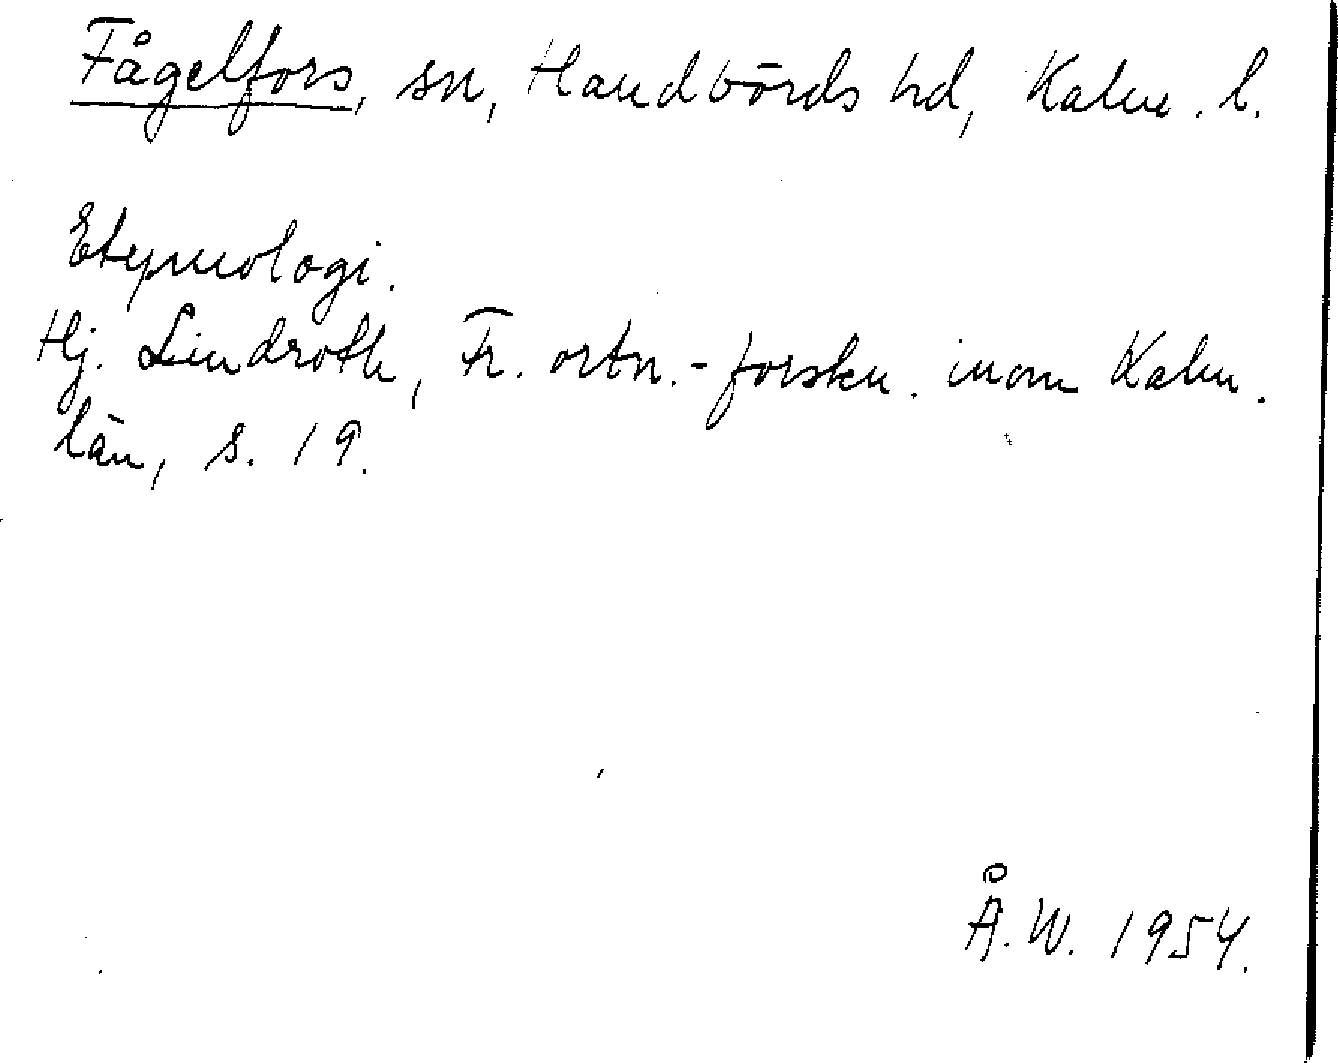 Fågelfors, sn, Handbörds hd, Kalm. l.
Etymologi.
Hj. Lindroth, Fr. ortn.-forskn. inom Kalm.
län, s. 19.
Å.W. 1954.